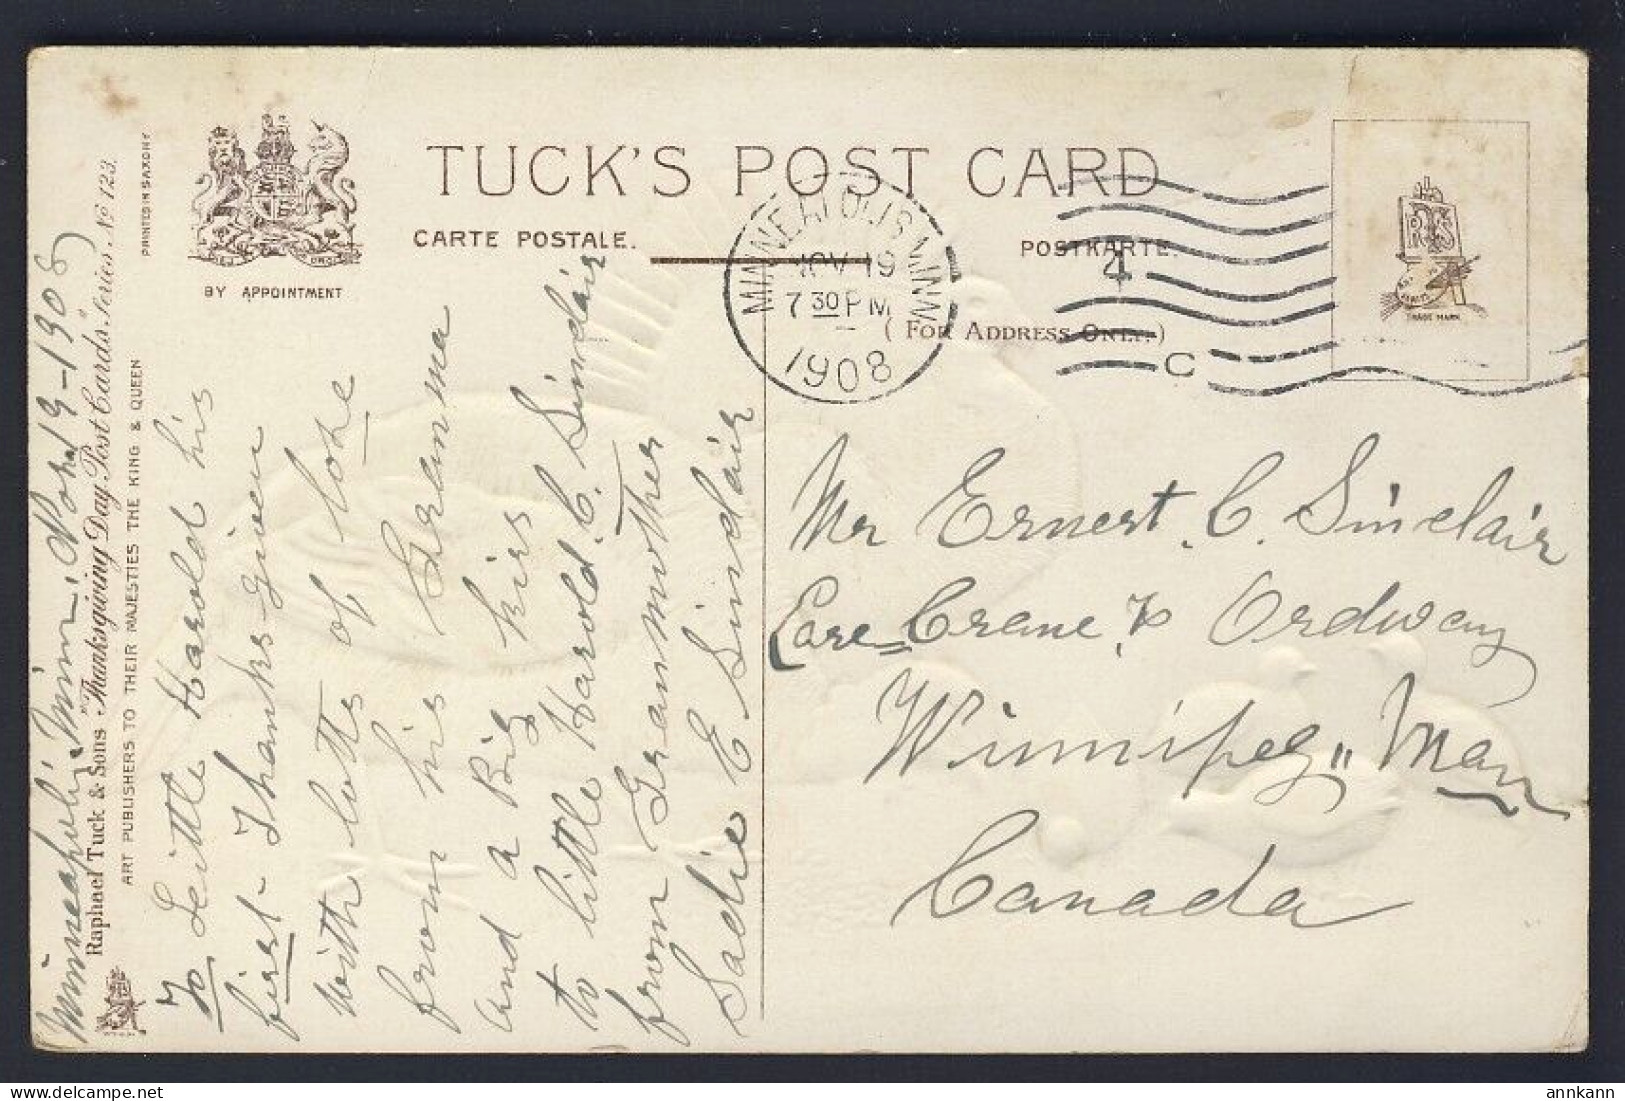 TUCK'S POST CARD
CARTE POSTALE.
POSTKARTE.
( FOR ADDRESS ONLY. )
BY APPOINTMENT
PRINTED IN SAXONY
Raphael Tuck & Sons "Thanksgiving Day" Post Cards. Series No 123.
ART PUBLISHERS TO THEIR MAJESTIES THE KING & QUEEN
MINNEAPOLIS MINN
NOV 19
7 30 PM
1908
4
C
TRADE MARK
Minneapolis. Minn. Nov 19-1908
To Little Harold his
first Thanks-Given
with lotts of love
from his Granma
and a Big kiss
to little Harold. C. Sinclair
from Granmother
Sadie E Sinclair
Mr Ernest. C. Sinclair
Care Crane & Ordway
Winnipeg" Man
Canada
annkann